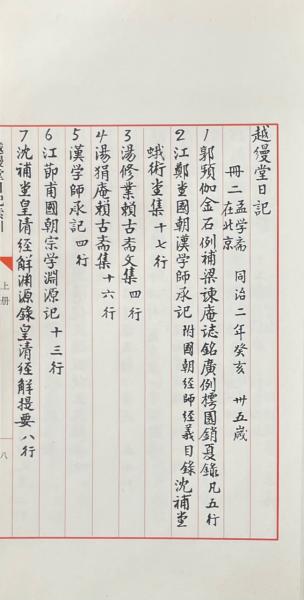 越縵堂日記
冊二 孟学斋 同治二年癸亥 卅五歲
在北京
1 郭頻伽金石例補梁諫庵志銘廣例樗園銷夏錄 凡五行
2 江鄭堂國朝漢学師承記 附國朝经師经義目錄 沈補堂
蛾術堂集 十七行
3 湯修業賴古斋文集 四行
4 湯狷庵賴古斋集 十六行
5 漢学師承記 四行
6 江節甫國朝宗学淵源記 十三行
7 沈補堂皇清经解渊源錄皇清经解提要 八行
上册
八